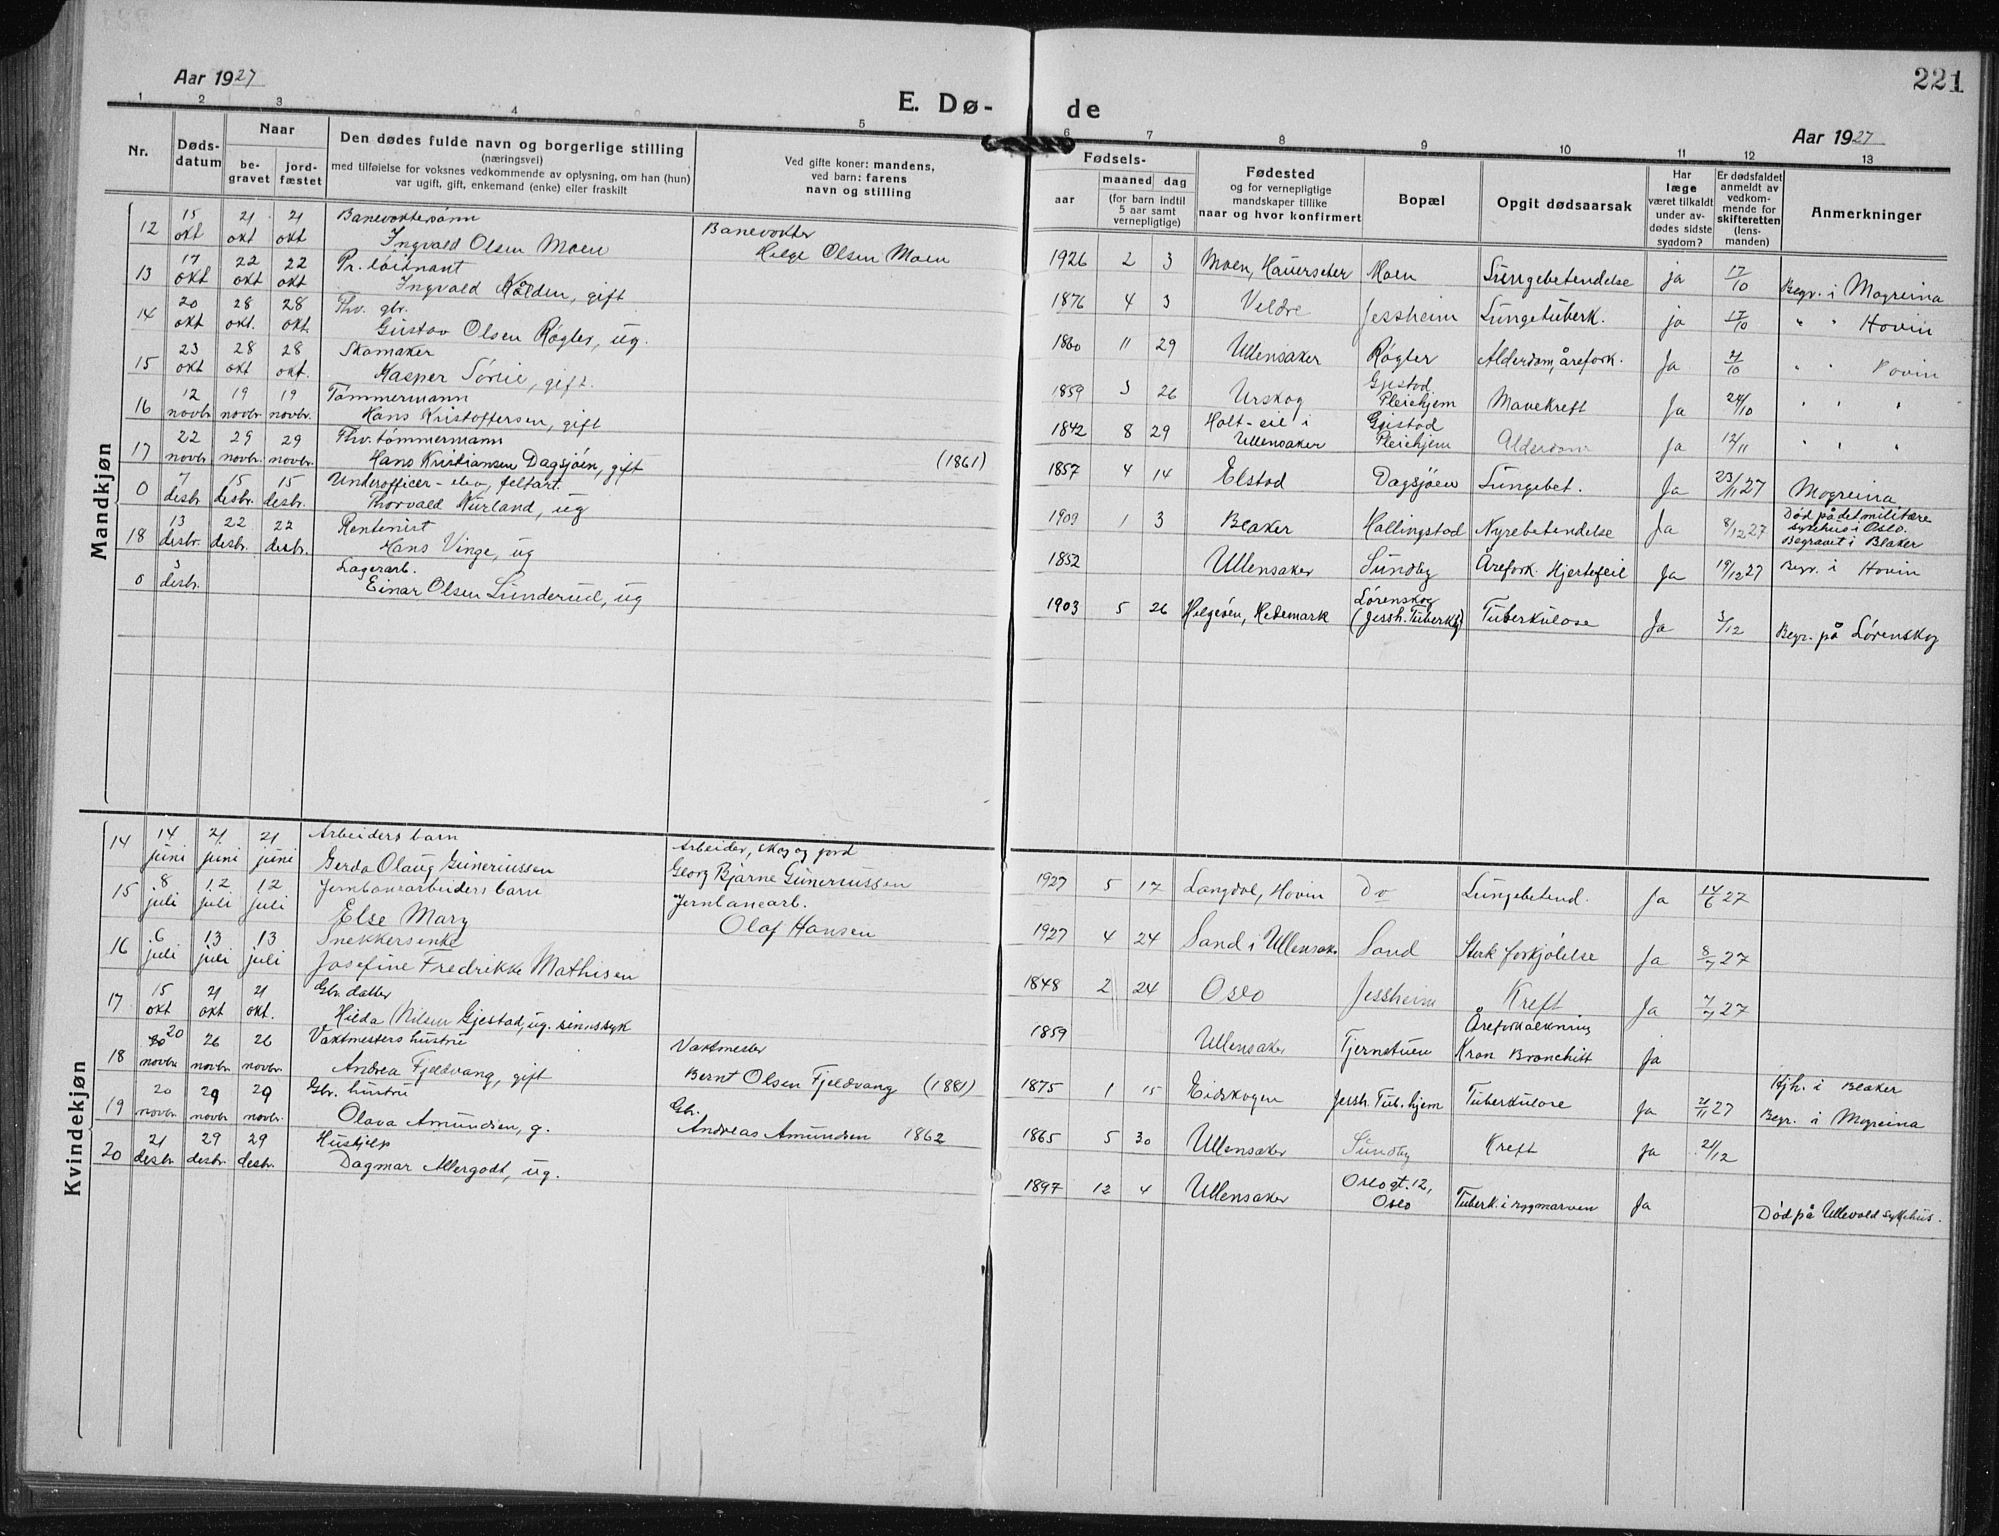 Aar 1927
221
E. Dø- de
Aar 1927
1 2 3 4 5 6 7 8 9 10 11 12 13
Nr.
Døds-
datum
Naar
be-
gravet
jord-
fæstet
Den dødes fulde navn og borgerlige stilling
(næringsvei)
med tilføielse for voksnes vedkommende av oplysning, om han (hun)
var ugift, gift, enkemand (enke) eller fraskilt
Ved gifte koner: mandens,
ved barn: farens
navn og stilling
Fødsels-
aar
maaned dag
(for barn indtil
5 aar samt
vernepligtige)
Fødested
og for vernepligtige
mandskaper tillike
naar og hvor konfirmert
Bopæl
Opgit dødsaarsak
Har
læge
været tilkaldt
under av-
dødes sidste
sygdom?
Er dødsfaldet
anmeldt av
vedkom-
mende for
skifteretten
(lens-
manden)
Anmerkninger
Mandkjøn
12 15 okt 21 okt 21 okt Banevoktersønn
Ingvald Olsen Moen
Banevokter
Helge Olsen Moen
1926 2 3 Moen, Hauerseter Moen Lungebetendelse ja 17/10 Begr. i Mogreina
13 17 okt 22 okt 22 okt Pr. løitnant
Ingvald Kölden, gift
1876 4 3 Veldre Jessheim Lungetuberk. ja 17/10 " " Hovin
14 20 okt 28 okt. 28 okt. Fhv. gbr.
Gustav Olsen Røgler, ug.
1860 11 29 Ullensaker Røgler Alderdom, årefork. Ja 21/10 " " Hovin
15 23 okt 28 okt 28 okt. Skomaker
Kasper Sörlie, gift.
1859 3 26 Urskog Gjestad
Pleiehjem Mavekreft Ja 24/10 " " "
16 12 novbr 19 novbr 19 novbr. Tömmermann
Hans Kristoffersen, gift
1842 8 29 Holt-eie i
Ullensaker Gjestad
Pleiehjem Alderdom Ja 12/11 " " "
17 22 novbr 29 novbr. 29 novbr. Fhv. tömmermann
Hans Kristiansen Dagsjøen, gift
(1861)
1857 4 14 Elstad Dagsjøen Lungebet. Ja 23/11 27 Mogreina
0 7 desbr 15 desbr. 15 desbr. Underofficer-elev, feltart.
Thorvald Kurland, ug
1909 1 3 Blaker Hallingstad Nyrebetendelse Ja 8/12 27 Död på det militære
sykehus i Oslo.
Begravet i Blaker
18 13 desbr. 22 desbr. 22 desbr. Rentenist
Hans Vinge, ug
1852 Ullensaker Sundby Årefork. Hjertefeil Ja 19/12 27 Begr. i Hovin
0 3 desbr. Lagerarb.
Einar Olsen Lunderud, ug
1903 5 26 Helgeøen, Hedemark Lørenskog
(Jessh. Tuberkhj) Tuberkulose Ja 3/12 Begr. på Lørenskog
Kvindekjøn
14 14 juni 21. juni 21 juni Arbeiders barn
Gerda Olaug Gunerussen
Arbeider, skog og jord
Georg Bjarne Gunerussen
1927 5 17 Langdal, Hovin Do Lungebetend. Ja 14/6 27
15 8 juli 12 juli 12 juli Jernbanearbeiders barn
Else Mary
Jernbanearb.
Olaf Hansen
1927 4 24 Sand i Ullensaker Sand Sterk forkjölelse Ja 8/7 27
16 6 juli 13 juli 13 juli Snekkersenke
Josefine Fredrikke Mathisen
1848 2 24 Oslo Jessheim Kreft Ja 7/7 27
17 15 okt 21 okt 21 okt. Gbr. datter
Hilda Nilsen Gjestad, ug. sinnssyk
1859 Ullensaker Tjernstuen Åreforkalkning
Kron Bronchitt ja
18 20 novbr. 26 novbr. 26 novbr. Vaktmesters hustru
Andrea Fjeldvang, gift
Vaktmester
Bernt Olsen Fjeldvang (1881)
1875 1 15 Eidskogen Jessh. Tub.hjem Tuberkulose Ja 21/11 27 Hjh. i Blaker
Begr. i Mogreina
19 20 novbr. 29 novbr 29 novbr. Gbr. hustru
Olava Amundsen, g.
Gbr.
Andreas Amundsen 1862
1865 5 30 Ullensaker Sundby Kreft Ja 21/12
20 21 desbr. 29 desbr. 29 desbr. Hushjelp
Dagmar Allergodt, ug.
1897 12 4 Ullensaker Oslogt. 12,
Oslo Tuberk. i rygmarven Ja Död på Ullevold sykehus.